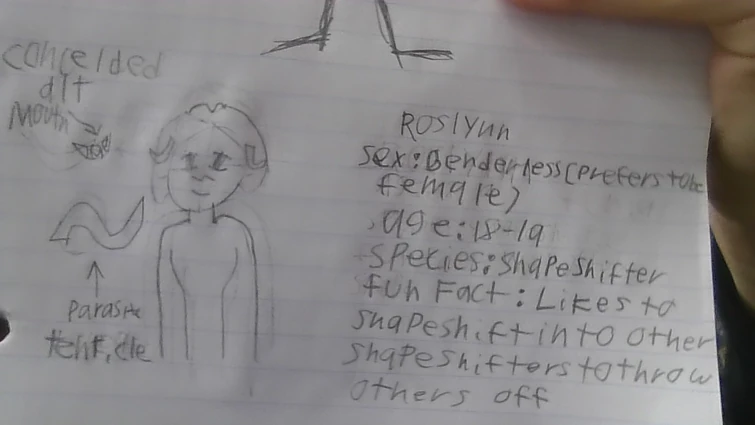 concelded
alt
Mouth
Parasite
tent,cle
Roslynn
Sex:Genderless(prefers to be
female)
age:18-19
Species:Shapeshifter
fun Fact:Likes to
shapeshift into other
shapeshifters to throw
others off